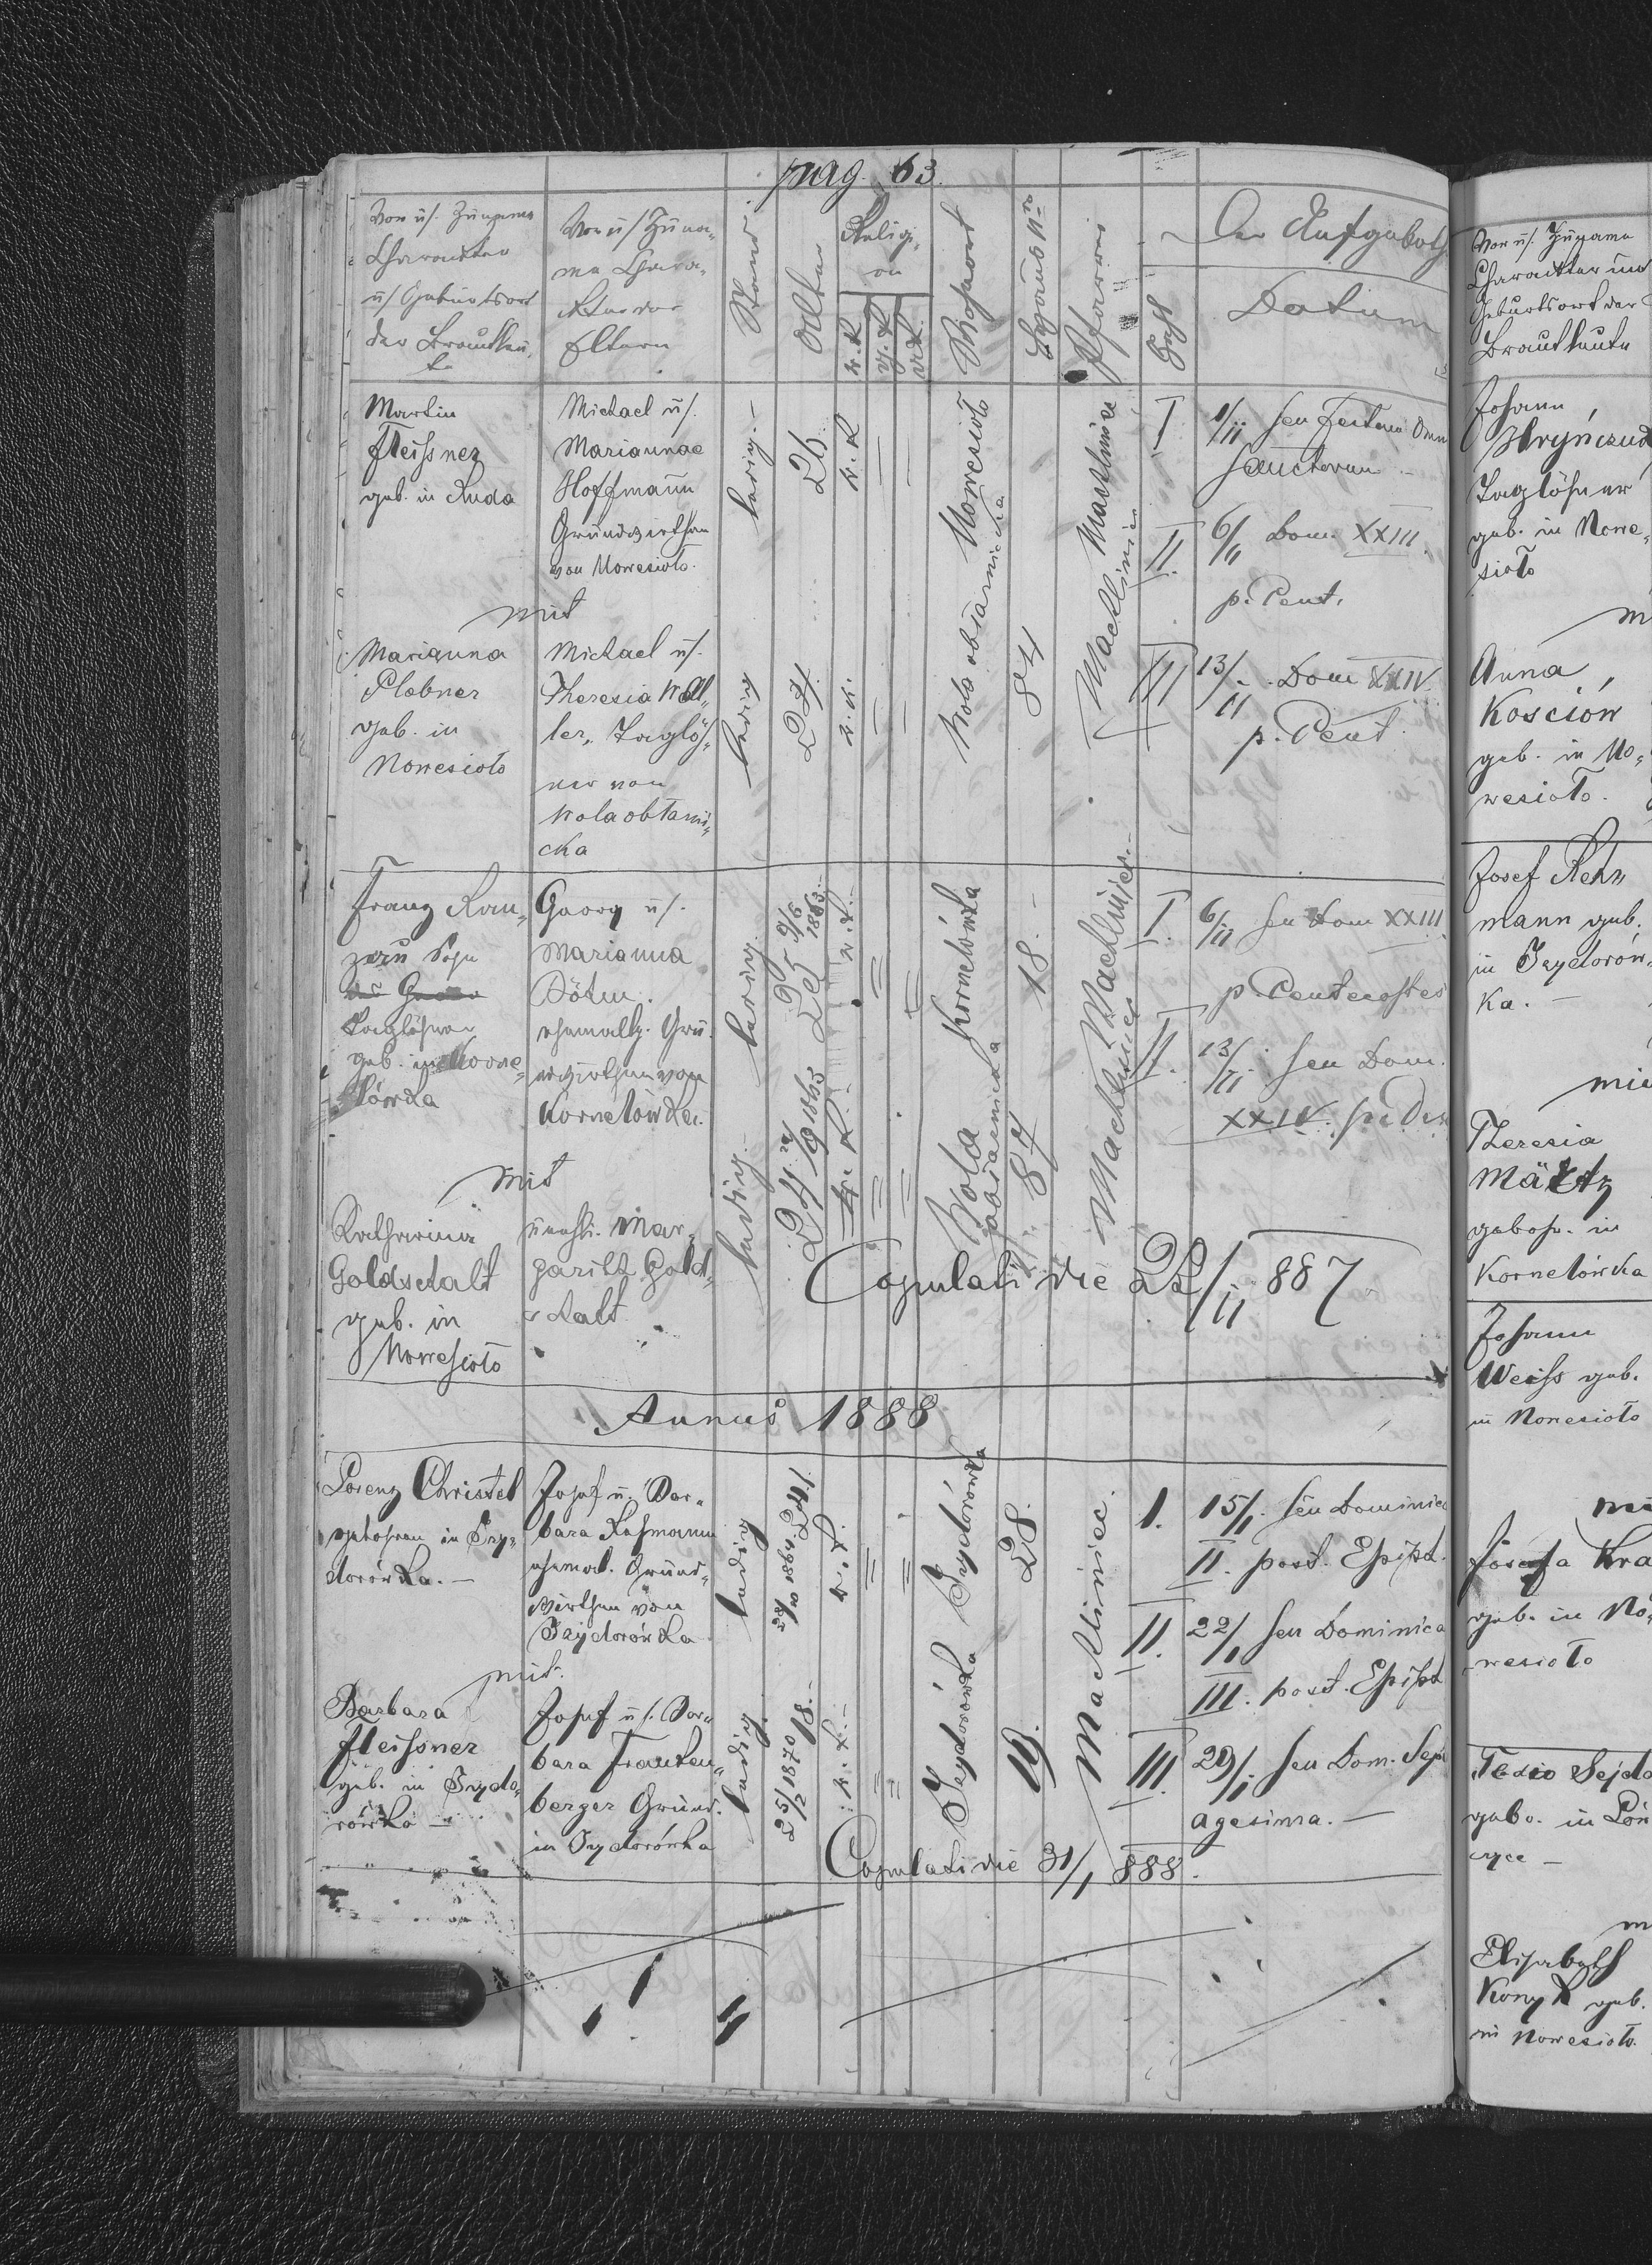 pag. 63.
Vor u/. Zuname
Charackter
u/ Geburtsort
der Brautleu-
te
Vor u/ Zuna-
me Chara-
kter der
Eltern
Stand
Alter
Religi-
on
Wohnort
Hausus Nro
Pfarrei
Zahl
Der Aufgeboth
Datum
Martin
Fleissner
geb. in Ruda
Michael u/.
Mariannae
Hoffmann
Grundwirthen
von Nowesioło.
ledig.
26
r. k
Nowesioło
Machliniec
I
1/11 seu Festum Omn
Sanctorum
II.
6/11 Dom. XXIII.
p. Pent.
mit
Marianna
Plobner
geb. in
Nowesioło
Michael u/.
Theresia Woll-
ler, Taglöh-
ner von
Wola obłazni-
cka
ledig
24.
r. k.
Wola obłaznicka
84
Machliniec
III
13/11 Dom XXIV.
p. Pent.
Franz
Taglöhner
geb. in Korne-
lówka
Georg u/.
Marianna
ehemalig. Gru-
ndwirthen von
Kornelówka.
ledig.
1863.
r. k.
Kornelówka
18.
Machliniec
I.
6/11 seu Dom XXIII.
p. Pentecostes
II.
13/11 seu Dom.
XXIV.
mit
Katharina
Goldschalt
geb. in
Nowesioło
unehl. Mar-
gareth Gold-
schalt
ledig.
24
1863
r. k.
Wola
obłaznicka
87
Machliniec
Copulati die 22/11 887
Annus 1888
Lorenz Christel
gebohren in Izy-
dorówka. —
Josef u. Bar-
bara Rehmann
ehemal. Grund-
wirthen von
Izydorówka
ledig
1864. 24.
r. k.
Izydorówka
28.
Machliniec.
I.
15/1. seu Dominica
II. post. Epiph.
II.
22/1 seu Dominica
III. post. Epiph
mit
Barbara
Fleissner
geb. in Izydo-
rówka —
Josef u/. Bar-
bara Frauten-
berger Grund.
in Izydorówka
ledig.
25/2 1870 18.—
r. k.—
Izydorówka
19.
III.
29/1 seu Dom. Sept
agesima. —
Copulati die 31/1 888.
Vor u/. Zuname
Charackter und
Geburtsort der
Brautleute
Johann
Hryńczuk
Taglöhner
geb. in Nowe-
sioło
Anna
Kościów
geb. in No-
wesioło.
Josef Reh-
mann geb.
in Izydorów-
ka. —
mit
Theresia
gebohr. in
Kornelówka
Johann
Weiss geb.
in Nowesioło
Josefa Kra
geb. in No-
wesioło
Fedio Sejda
Elisabeth
Konyk geb.
in Nowesioło.